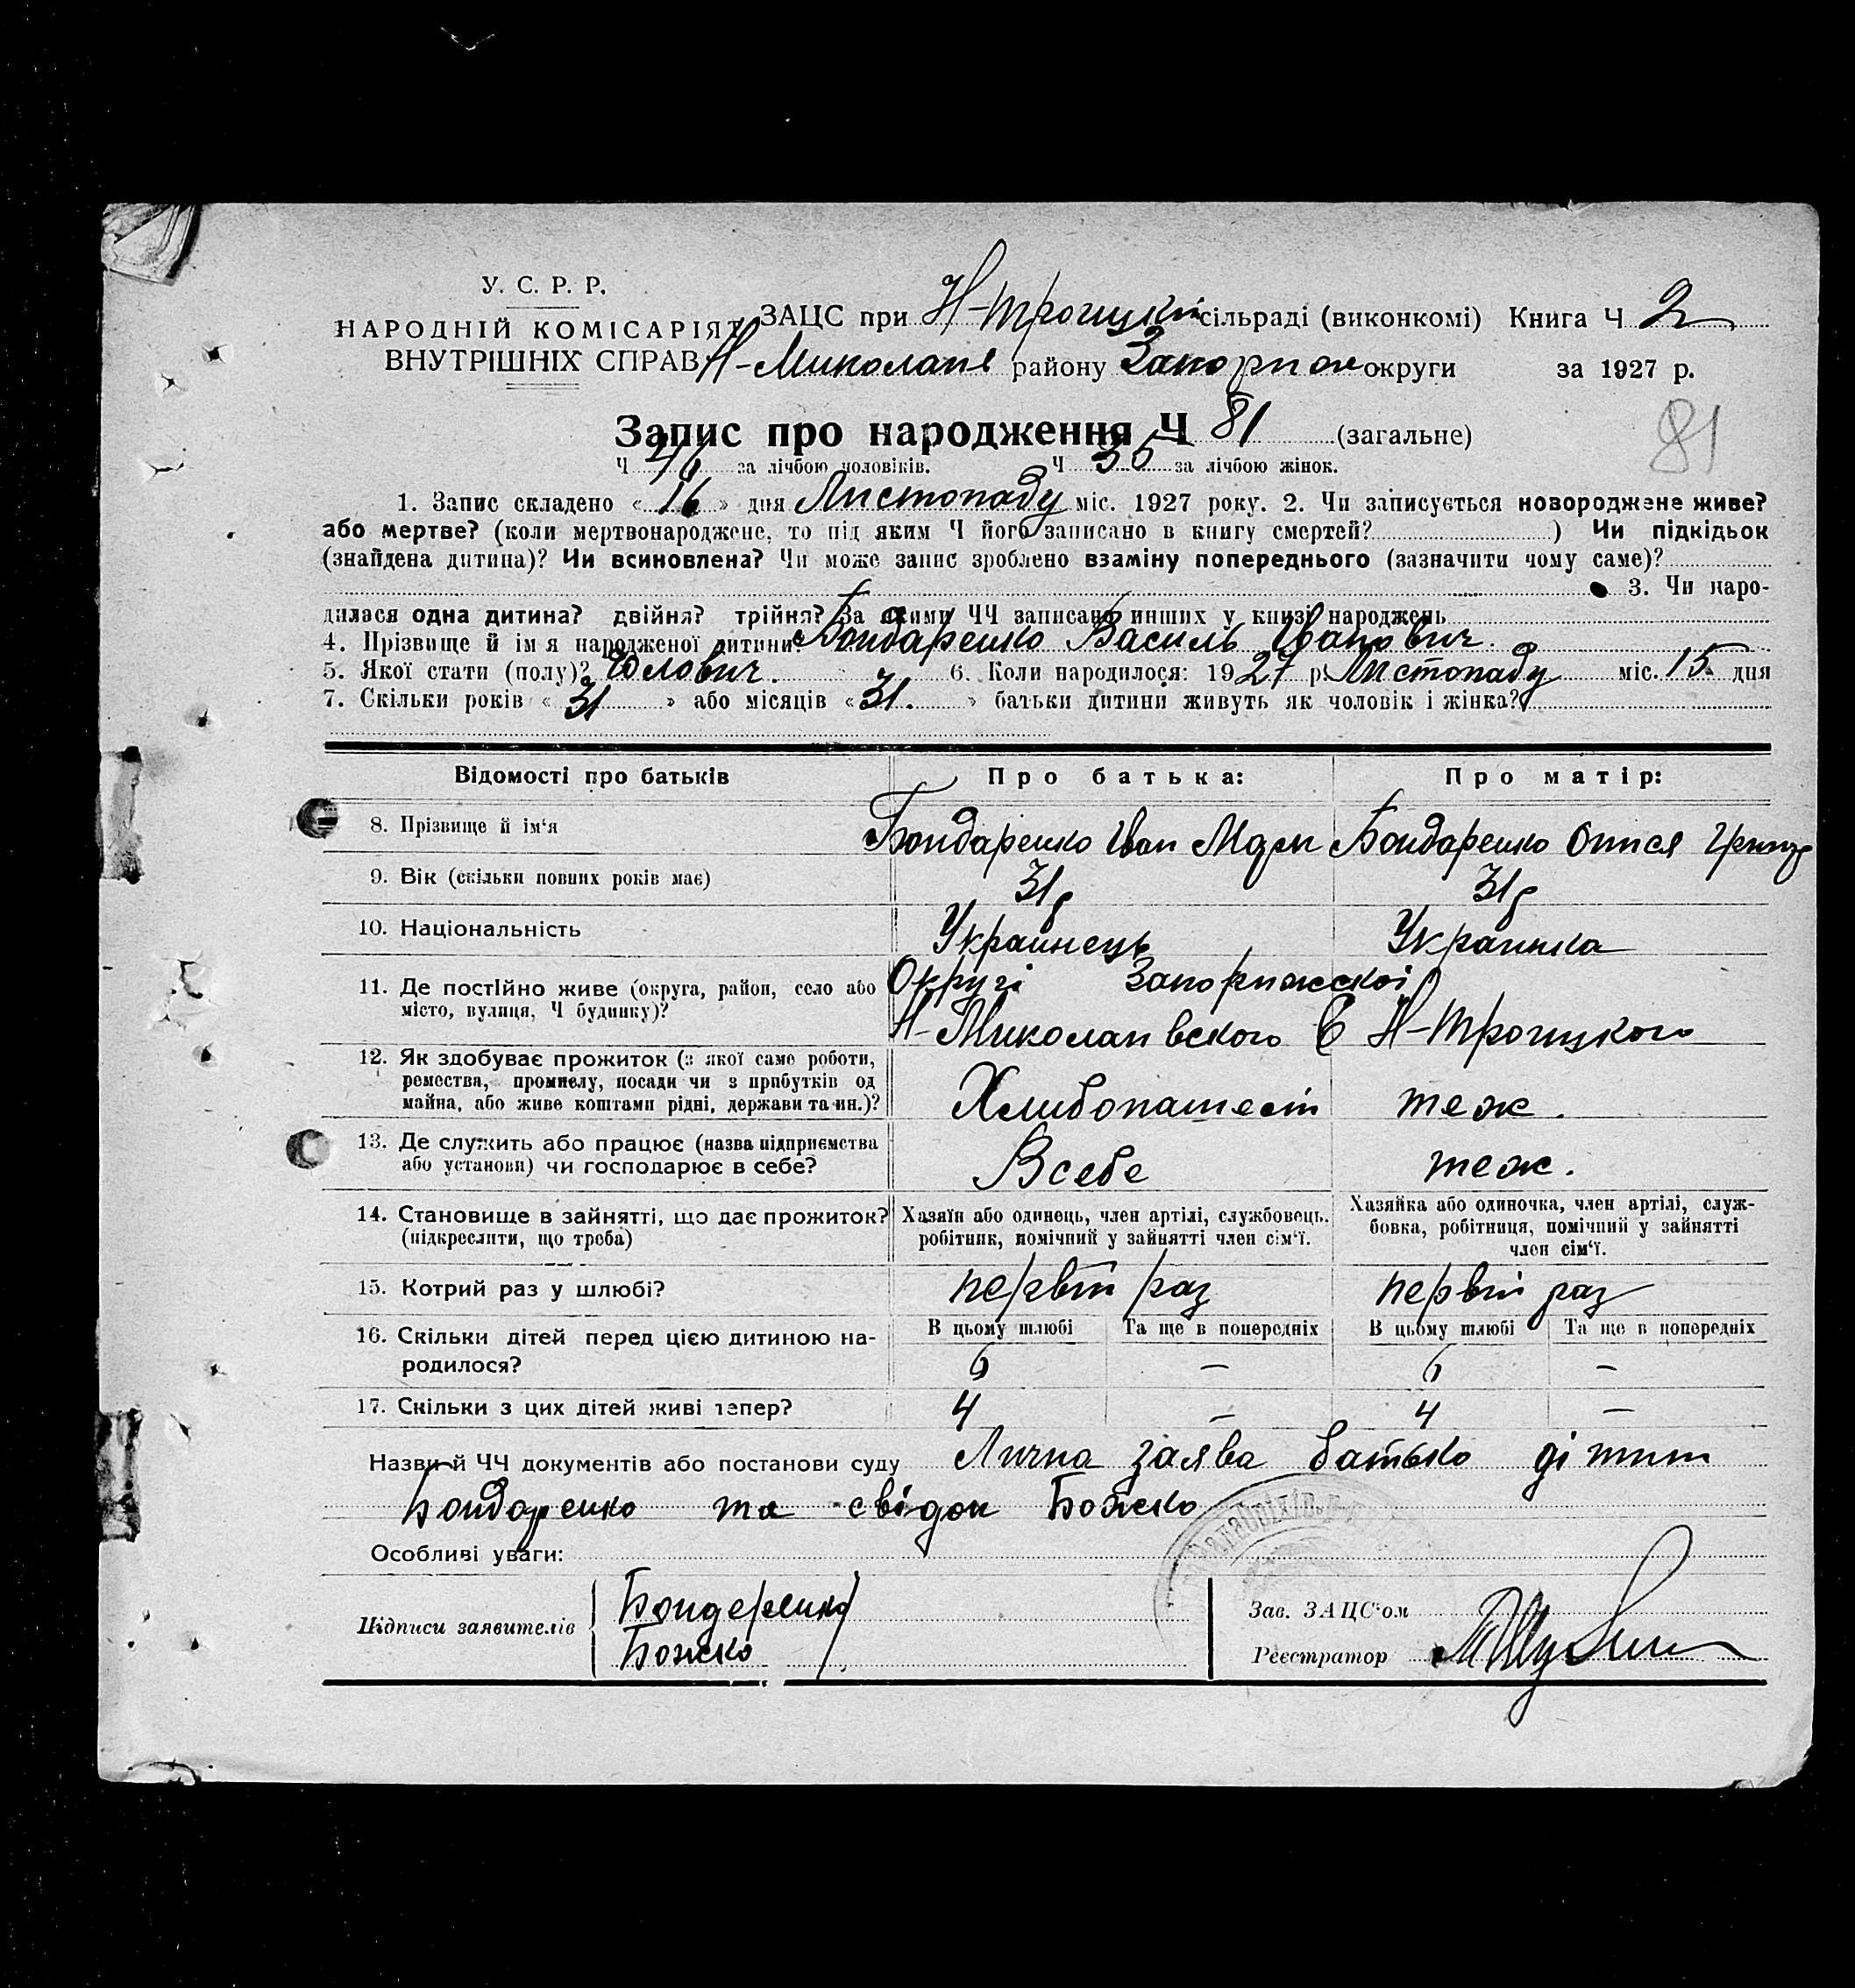 У. С. Р. Р.
НАРОДНІЙ КОМІСАРІЯТ
ВНУТРІШНІХ СПРАВ
ЗАЦС при Н-Троицкій сільраді (виконкомі) Книга Ч 2
Н-Миколаїв району Запориж округи за 1927 р.
Запис про народження Ч 81 (загальне)
81
Ч 46 за лічбою чоловіків. Ч 35 за лічбою жінок.
1. Запис складено « 16 » дня Листопаду міс. 1927 року. 2. Чи записується новороджене живе?
або мертве? (коли мертвонароджене, то під яким Ч його записано в книгу смертей? ) Чи підкідьок
(знайдена дитина)? Чи всиновлена? Чи може запис зроблено взаміну попереднього (зазначити чому саме)?
3. Чи наро-
дилася одна дитина? двійня? трійня? За якими ЧЧ записано инших у книзі народжень
4. Прізвище й ім я народженої дитини Бондаренко Василь Іванович.
5. Якої стати (полу)? Чолович. 6. Коли народилося: 1927 р. Листопаду міс. 15 дня
7. Скільки років « 31 » або місяців « 31. » батьки дитини живуть як чоловік і жінка?
Відомості про батьків Про батька: Про матір:
8. Прізвище й ім‘я Бондаренко Іван Бондаренко
9. Вік (скільки повних років має) 31р 31р
10. Національність Украинець Украинка
11. Де постійно живе (округа, район, село або Округі Запорижскоі
місто, вулиця, Ч будинку)? Н-Миколаивского С Н-Троицкого
12. Як здобуває прожиток (з якої саме роботи,
ремества, промислу, посади чи з прибутків од
майна, або живе коштами рідні, держави та ин.)? теж.
13. Де служить або працює (назва підприємства
або установи) чи господарює в себе? В себе теж.
14. Становище в зайнятті, що дає прожиток? Хазяїн або одинець, член артілі, службовець. Хазяйка або одиночка, член артілі, служ-
(підкреслити, що треба) робітник, помічний у зайнятті член сім‘ї. бовка, робітниця, помічний у зайнятті
член сім‘ї.
15. Котрий раз у шлюбі? первій раз первій раз
16. Скільки дітей перед цією дитиною на- В цьому шлюбі Та ще в попередніх В цьому шлюбі Та ще в попередніх
родилося? 6 — 6 —
17. Скільки з цих дітей живі тепер? 4 — 4 —
Назви й ЧЧ документів або постанови суду Лична заява батько
Бондаренко та свідок Божко
Особливі уваги:
Підписи заявителів Бондаренко
Божко
Зав. ЗАЦС‘ом
Реєстратор